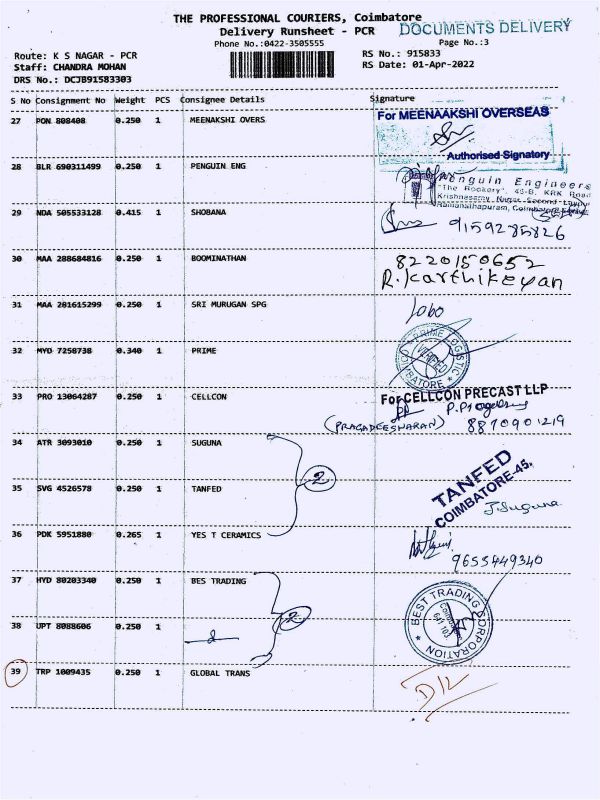 THE PROFESSIONAL COURIERS, Coimbatore
DOCUMENTS DELIVERY
Delivery Runsheet - PCR
Phone No.:0422-3505555
Page No.:3
Route: K S NAGAR - PCR
RS No.: 915833
Staff: CHANDRA MOHAN
RS Date: 01-Apr-2022
DRS No.: DCJB91583303
S No Consignment No Weight PCS Consignee Details Signature
27 PON 808408 0.250 1 MEENAKSHI OVERS
For MEENAAKSHI OVERSEAS
Authorised Signatory
28 BLR 690311499 0.250 1 PENGUIN ENG
Penguin Engineers
"The Rookery", 45-B, KRK Road
Krishnasamy Nagar Second Layout
Ramanathapuram, Coimbatore
29 NDA 505533128 0.415 1 SHOBANA
9159285826
30 MAA 288684816 0.250 1 BOOMINATHAN
8220150652
R.Karthikeyan
31 MAA 281615299 0.250 1 SRI MURUGAN SPG
32 MYD 7258738 0.340 1 PRIME
PRIME LOGISTIC
VERIFIED
COIMBATORE
33 PRO 13064287 0.250 1 CELLCON
For CELLCON PRECAST LLP
(PRAGADEESHARAN) 8870901219
34 ATR 3093010 0.250 1 SUGUNA
2
35 SVG 4526578 0.250 1 TANFED
TANFED
COIMBATORE-45.
J.Suguna
36 PDK 5951880 0.265 1 YES T CERAMICS
9655449340
37 HYD 80203340 0.250 1 BES TRADING
2
BEST TRADING CORPORATION
38 UPT 8088606 0.250 1
39 TRP 1009435 0.250 1 GLOBAL TRANS